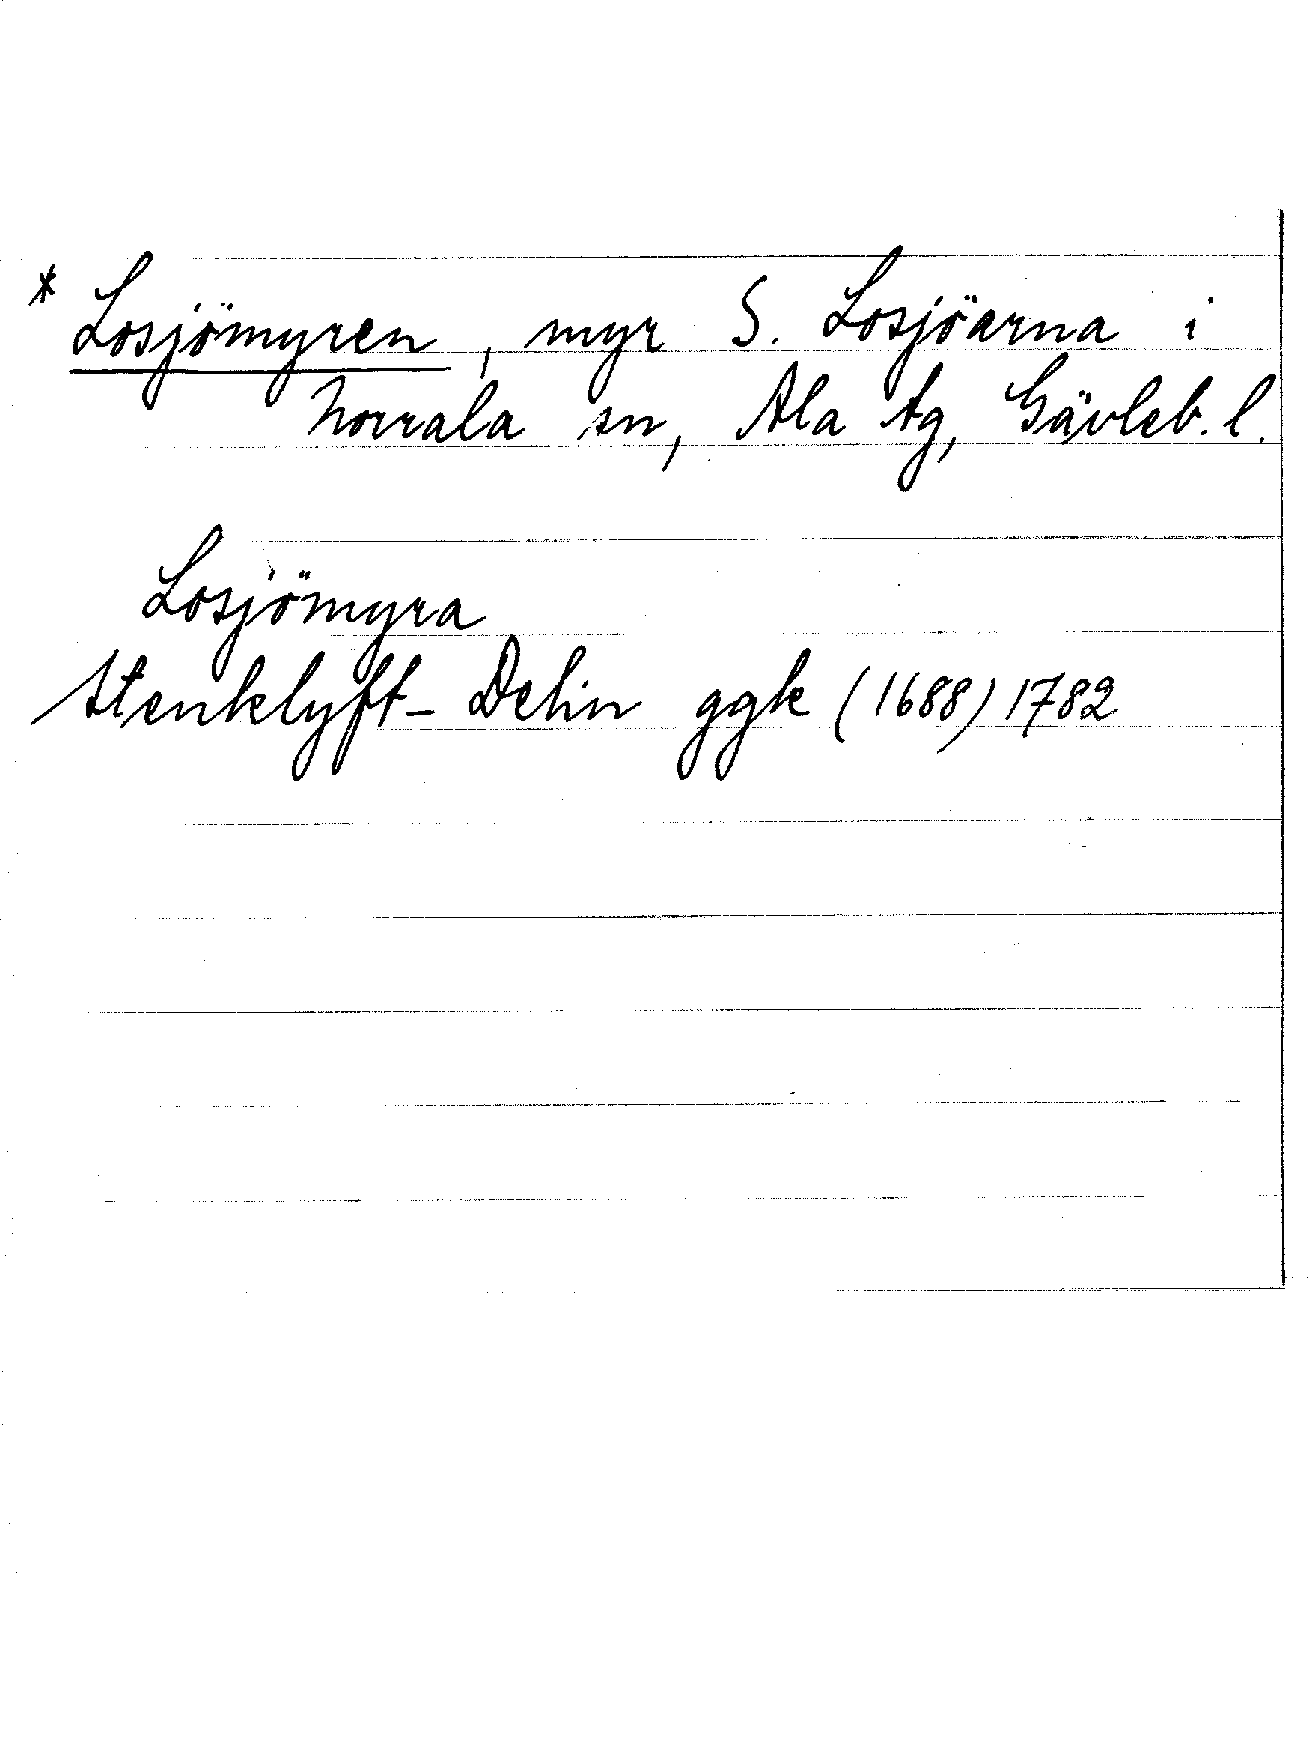 * Losjömyren, myr S. Losjöarna i
Norrala sn, Ala tg, Gävleb. l.
Losjömyra
Stenklyft- Delin ggk (1688) 1782